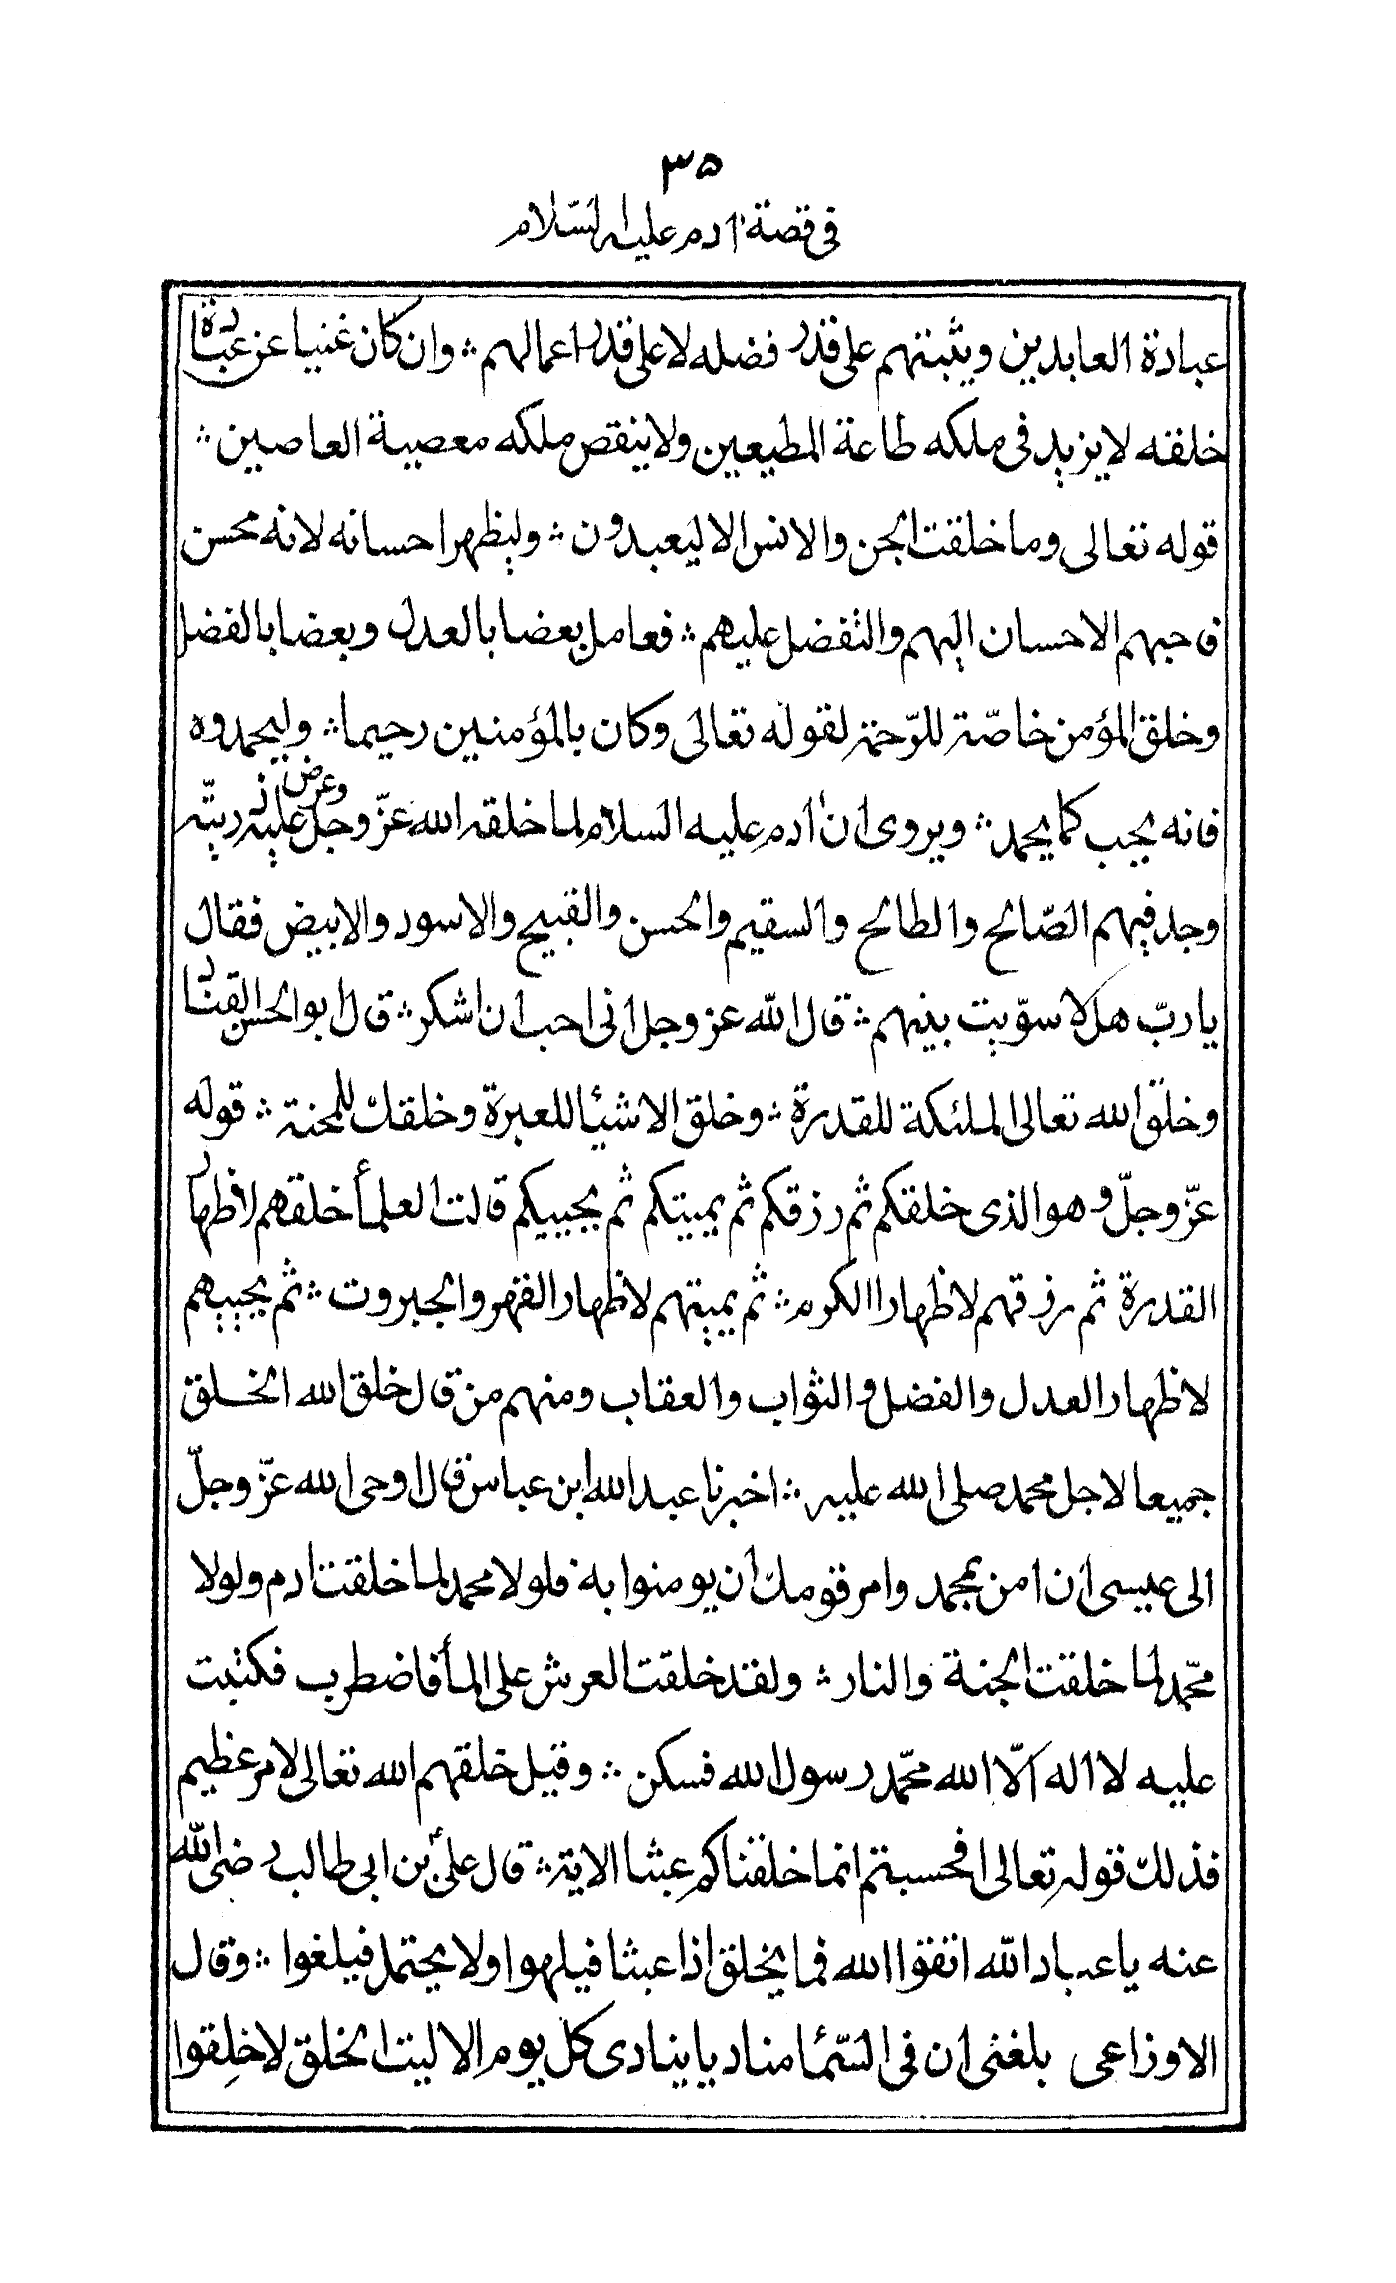 ٣٥
فى قصة اٰدم عليه السّلام
عبادة العابدين ويثبتهم على قدر فضله لا على قدر اعمالهم ؞ وان كان غنيا عن عبادة
خلقه لا يزيد فى ملكه طاعة المطيعين ولا ينقص ملكه معصية العاصين ؞
قوله تعالى وما خلقت الجن والانس الا ليعبدون ؞ وليظهر احسانه لانه محسن
فاحبهم الاحسان اليهم والتفضل عليهم ؞ فعامل بعضا بالعدل وبعضا بالفضل
وخلق المؤمن خاصّة للرّحمة لقوله تعالى وكان بالمؤمنين رحيما ؞ وليحمدوه
فانه يجب كما يحمد ؞ ويروى ان اٰدم عليه السلام لما خلقه الله عزّ وجل وعرض عليه ذريّته
وجد فيهم الصّالح والطالح والسقيم والحسن والقبيح والاسود والابيض فقال
يا ربّ هلا سوّيت بينهم ؞ قال الله عز وجل انى احب ان اشكر ؞ قال ابو الحسن القناد
وخلق الله تعالى الملئكة للقدرة ؞ وخلق الاشئا للعبرة وخلقك للمحنة ؞ قوله
عزّ وجلّ وهو الذى خلقكم ثم رزقكم ثم يميتكم ثم يحييكم قالت العلمأ خلقهم لاظهار
القدرة ثم رزقهم لاظهار االكرم ؞ ثم يميتهم لاظهار القهر والجبروت ؞ ثم يحييهم
لاظهار العدل والفضل والثواب والعقاب ومنهم من قال خلق الله الخلق
جميعا لاجل محمد صلى الله عليه ؞ اخبرنا عبد الله ابن عباس قال اوحى الله عزّ وجلّ
الى عيسى ان امن بمحمد وامر قومك ان يومنوا به فلولا محمد لما خلقت ادم ولولا
محّمد لما خلقت الجنة والنار ؞ ولقد خلقت العرش على المأ فاضطرب فكتبت
عليه لا اله الّا الله محّمد رسول الله فسكن ؞ وقيل خلقهم الله تعالى لامر عظيم
فذلك قوله تعالى افحسبتم انما خلقناكم عبثا الاية ؞ قال علىّ بن ابى طالب رضى الله
عنه يا عباد الله اتقوا الله فما يخلق اذا عبثا فيلهوا ولا يحتمل فيلغوا ؞ وقال
الاوزاعى بلغنى ان فى السّمٔا مناديا ينادى كل يوم الا ليت الخلق لا خلِقوا